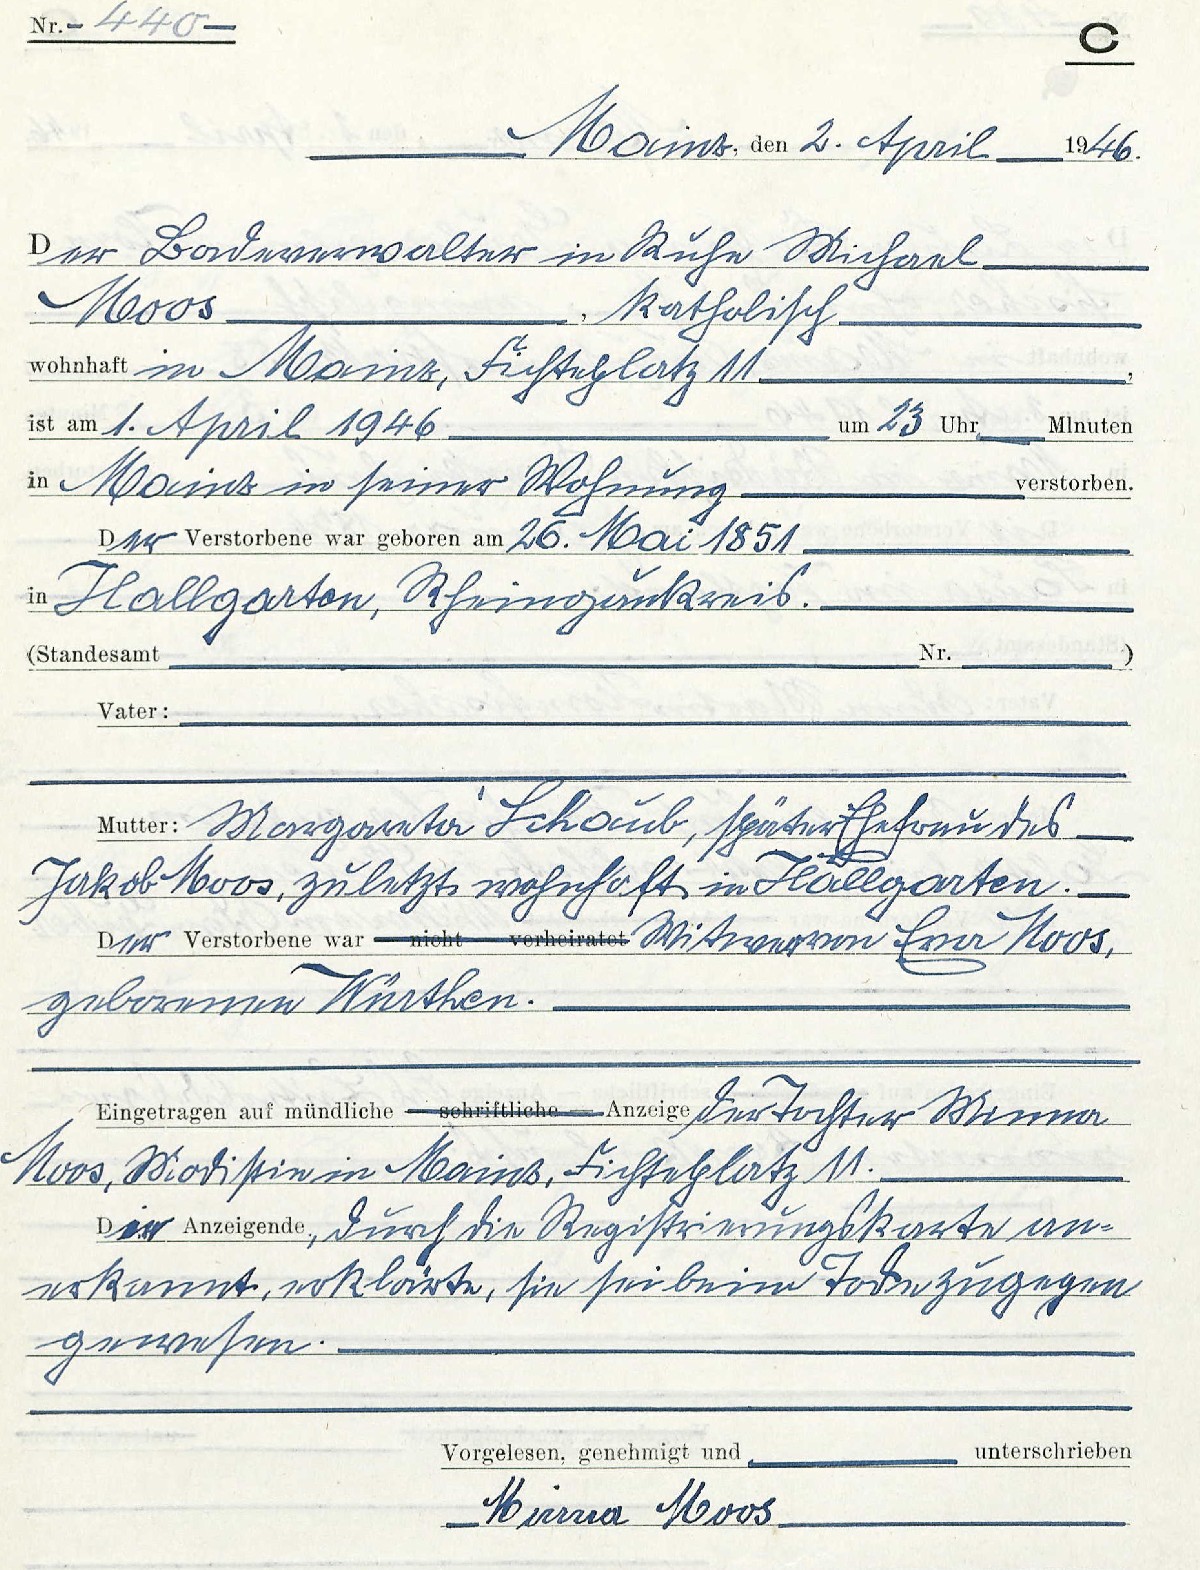 Nr. - 440 -
C
Mainz, den 2. April 1946.
Der Badeverwalter in Ruhe Michael
Moos, katholisch
wohnhaft in Mainz, Fichteplatz 11,
ist am 1. April 1946 um 23 Uhr Minuten
in Mainz in seiner Wohnung verstorben.
Der Verstorbene war geboren am 26. Mai 1851
in Hallgarten, Rheingaukreis.
(Standesamt Nr. )
Vater:
Mutter: Margareta Schaub, später Ehefrau des
Jakob Moos, zuletzt wohnhaft in Hallgarten.
Der Verstorbene war — nicht — verheiratet Witwer von Eva Moos,
geborenen Würthen.
Eingetragen auf mündliche — schriftliche — Anzeige der Tochter Minna
Moos, Modistin in Mainz, Fichteplatz 11.
Die Anzeigende, durch die Registrierungskarte an-
erkannt, erklärte, sie sei beim Tode zugegen
gewesen.
Vorgelesen, genehmigt und unterschrieben
Minna Moos